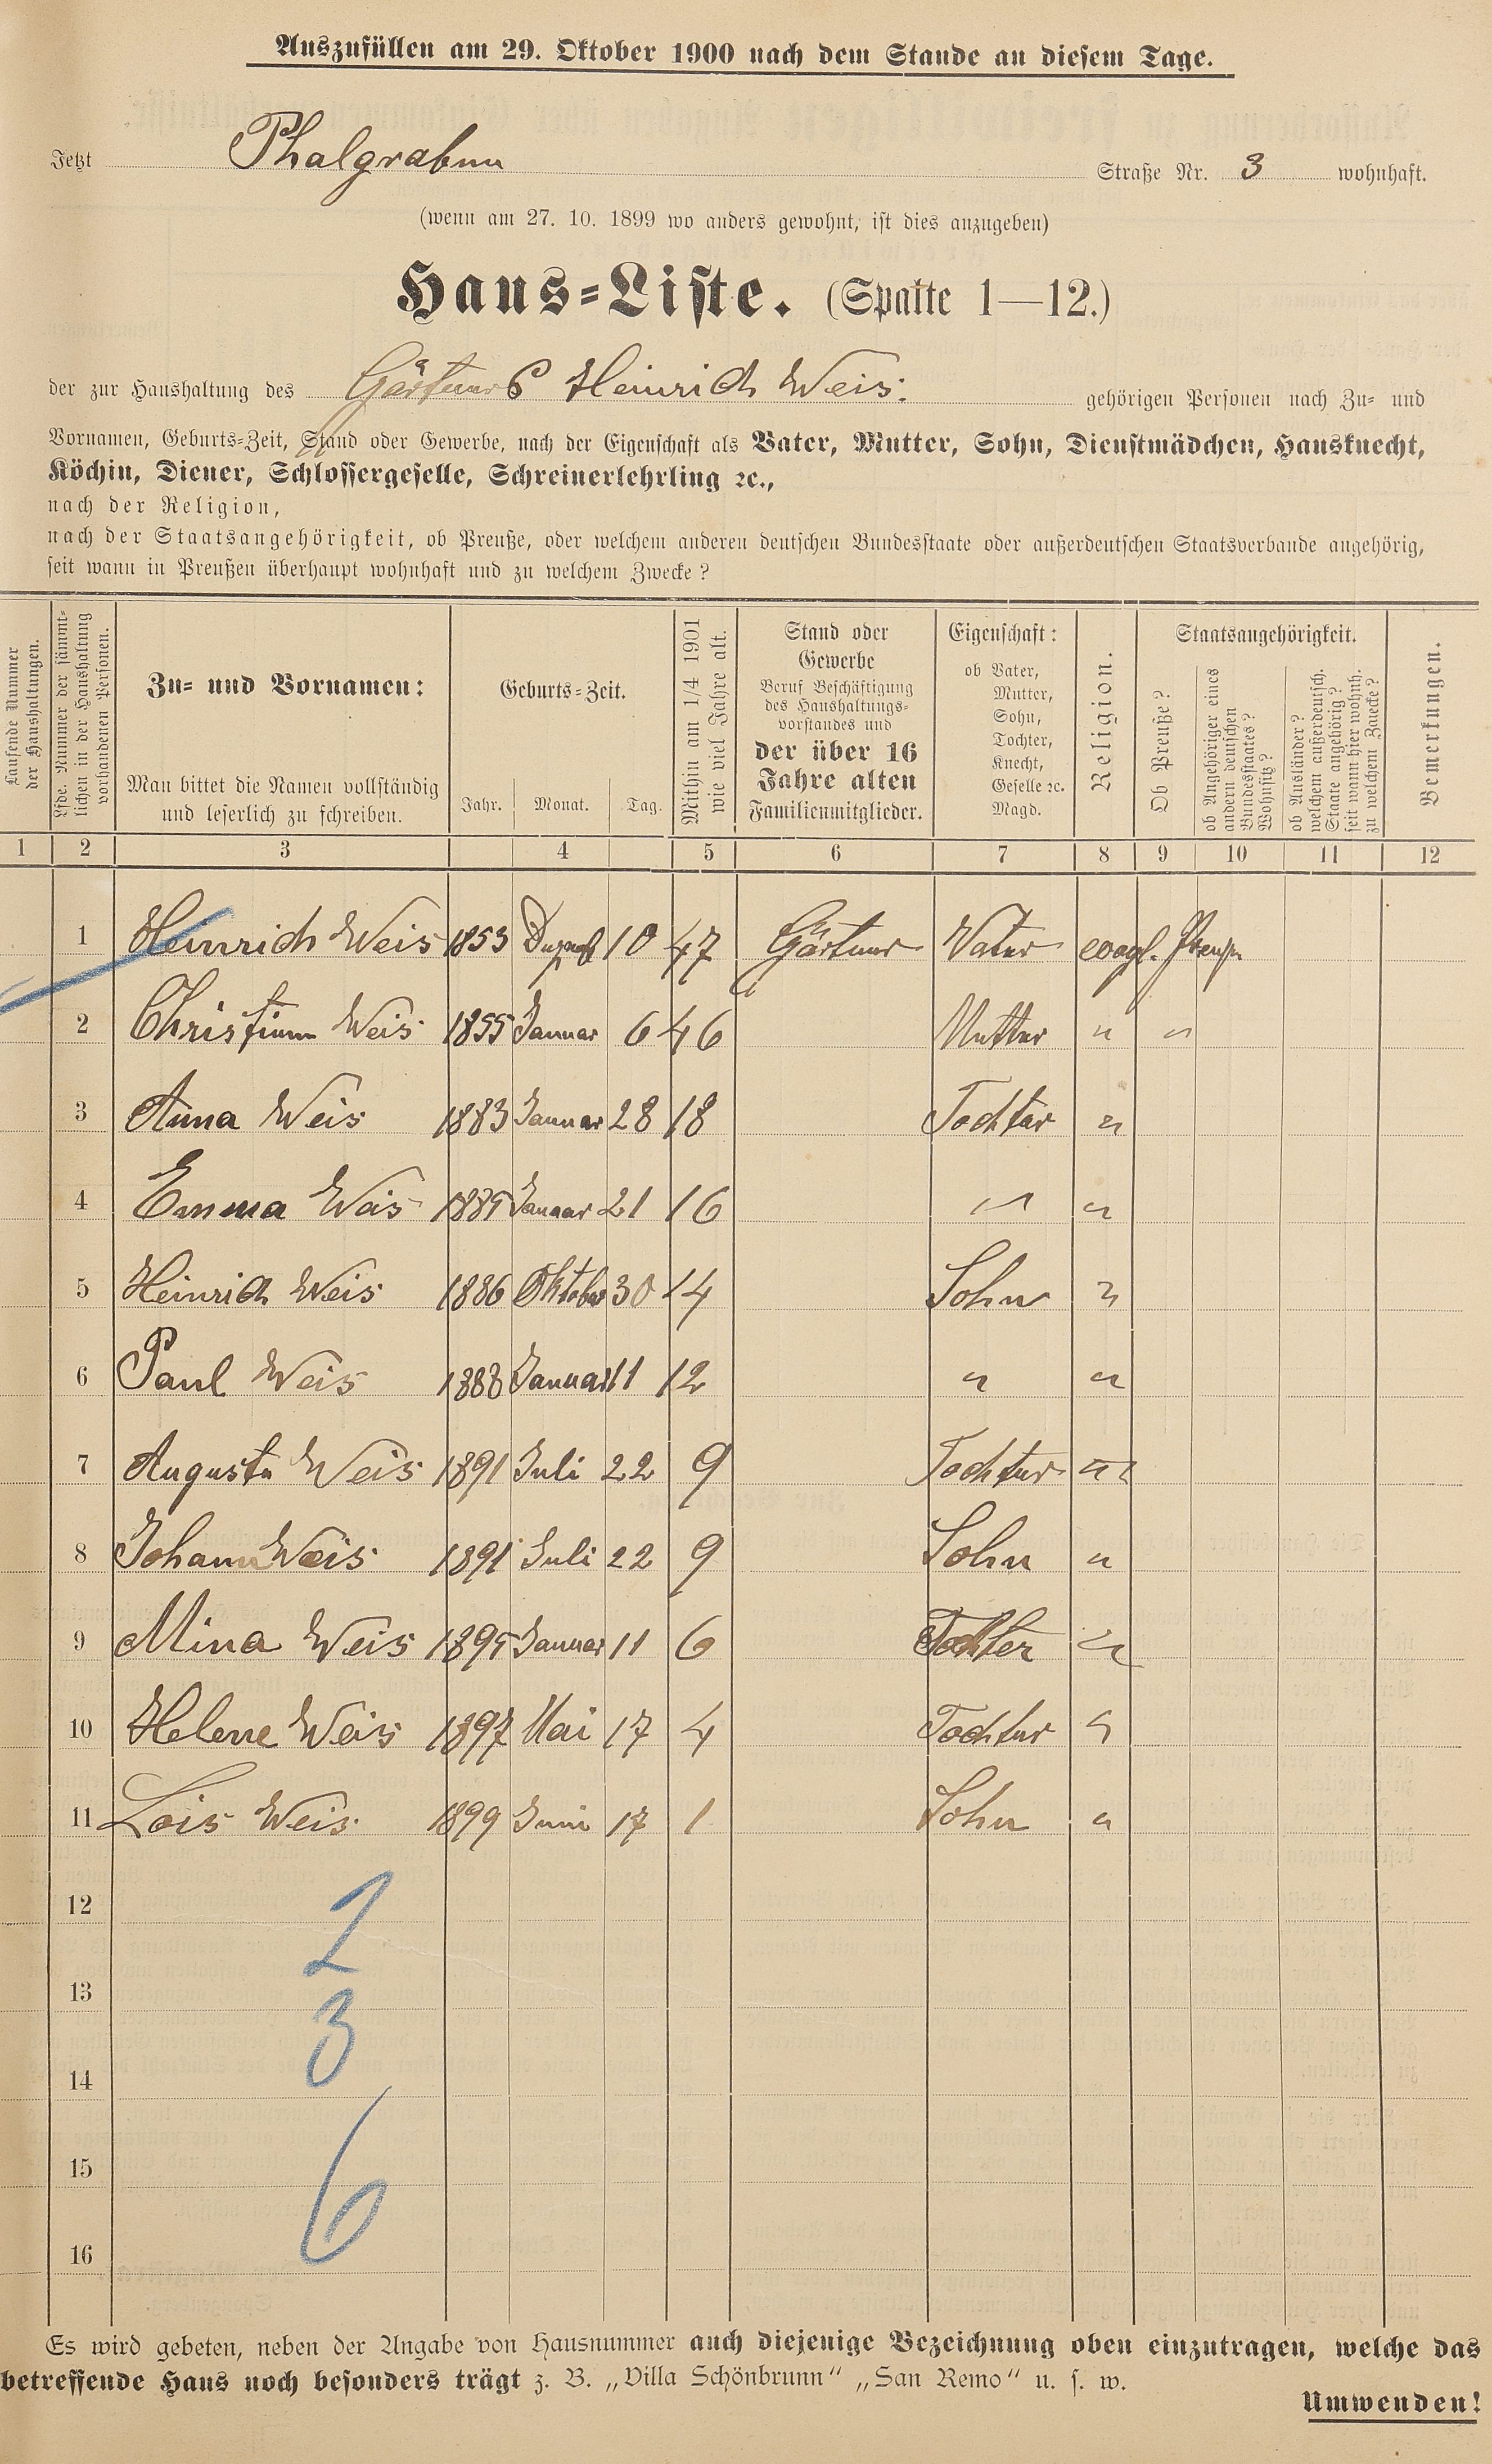 Auszufüllen am 29. Oktober 1900 nach dem Stande an diesem Tage.
Jetzt Phalgraben Straße Nr. 3 wohnhaft.
(wenn am 27. 10. 1899 wo anders gewohnt, ist dies anzugeben)
Haus-Liste. (Spalte 1—12.)
der zur Haushaltung des Gärtners Heinrich Weis. gehörigen Personen nach Zu- und
Vornamen, Geburts-Zeit, Stand oder Gewerbe, nach der Eigenschaft als Vater, Mutter, Sohn, Dienstmädchen, Hausknecht,
Köchin, Diener, Schlossergeselle, Schreinerlehrling ꝛc.,
nach der Religion,
nach der Staatsangehörigkeit, ob Preuße, oder welchem anderen deutschen Bundesstaate oder außerdeutschen Staatsverbande angehörig,
seit wann in Preußen überhaupt wohnhaft und zu welchem Zwecke?
Laufende Nummer
der Haushaltungen.
Lfde. Nummer der sämmt-
lichen in der Haushaltung
vorhandenen Personen.
Zu- und Vornamen:
Man bittet die Namen vollständig
und leserlich zu schreiben.
Geburts-Zeit.
Jahr. Monat. Tag.
Mithin am 1/4 1901
wie viel Jahre alt.
Stand oder
Gewerbe
Beruf Beschäftigung
des Haushaltungs-
vorstandes und
der über 16
Jahre alten
Familienmitglieder.
Eigenschaft:
ob Vater,
Mutter,
Sohn,
Tochter,
Knecht,
Geselle ꝛc.
Magd.
Religion.
Staatsangehörigkeit.
Ob Preuße?
ob Angehöriger eines
andern deutschen
Bundesstaates?
Wohnsitz?
ob Ausländer?
welchem außerdeutsch.
Staate angehörig?
seit wann hier wohnh.
zu welchem Zwecke?
Bemerkungen.
1 2 3 4 5 6 7 8 9 10 11 12
1 Heinrich Weis 1853 10 47 Gärtner Vater evagl. Preuße
2 Christiane Weis 1855 Januar 6 46 Mutter " "
3 Anna Weis 1883 Januar 28 18 Tochter "
4 Emma Weis 1885 Januar 21 16 " "
5 Heinrich Weis 1886 Oktober 30 14 Sohn "
6 Paul Weis 1888 Januar 11 12 " "
7 Auguste Weis 1891 Juli 22 9 Tochter "
8 Johann Weis 1891 Juli 22 9 Sohn "
9 Mina Weis 1895 Januar 11 6 Tochter "
10 Helene Weis 1897 Mai 17 4 Tochter "
11 Lois Weis 1899 Juni 17 1 Sohn "
12
2
13
3
14
15
6
16
Es wird gebeten, neben der Angabe von Hausnummer auch diejenige Bezeichnung oben einzutragen, welche das
betreffende Haus noch besonders trägt z. B. „Villa Schönbrunn“ „San Remo“ u. s. w.
Umwenden!